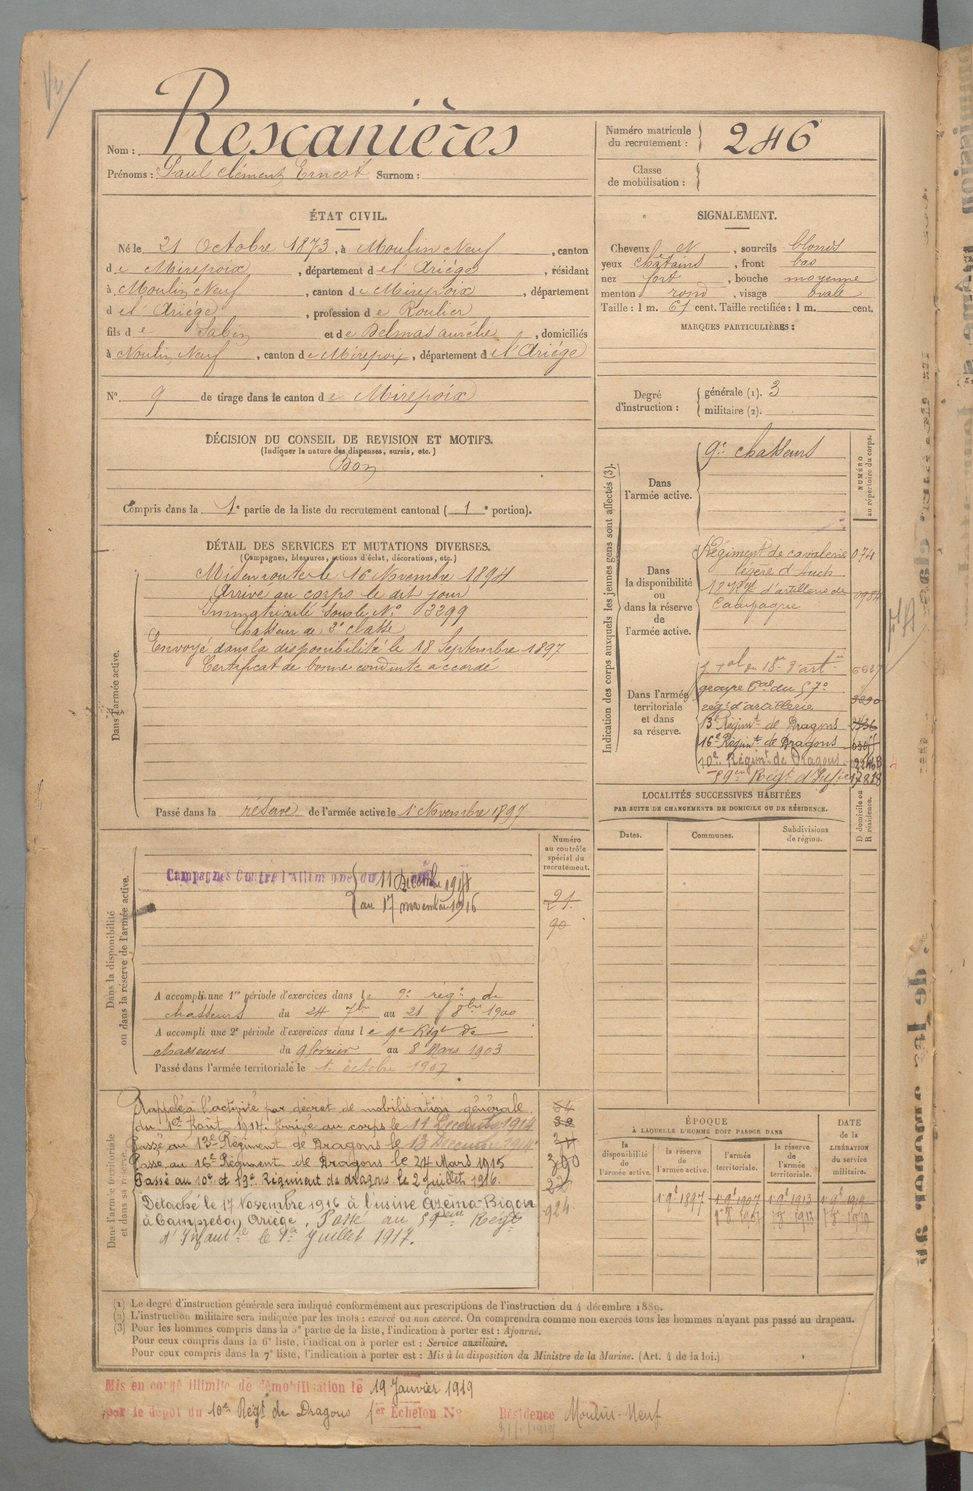 Nom : Rescanières
Prénoms : Paul Clément Ernest Surnom :
Numéro matricule du recrutement : 246
Classe de mobilisation :
ÉTAT CIVIL.
Né le 21 Octobre 1873, à Moulin Neuf, canton
de Mirepoix, département de l'Ariège, résidant
à Moulin Neuf, canton de Mirepoix, département
de l'Ariège, profession de Roulier
fils de Sabin et de Delmas Aurélie, domiciliés
à Moulin Neuf, canton de Mirepoix, département de l'Ariège
N° 9 de tirage dans le canton de Mirepoix
SIGNALEMENT.
Cheveux N, sourcils blonds
yeux châtains, front bas
nez fort, bouche moyenne
menton rond, visage ovale
Taille : 1 m. 67 cent. Taille rectifiée : 1 m. cent.
MARQUES PARTICULIÈRES :
Degré d'instruction : générale (1). 3
militaire (2).
DÉCISION DU CONSEIL DE REVISION ET MOTIFS.
(Indiquer la nature des dispenses, sursis, etc.)
Bon
Compris dans la 1e partie de la liste du recrutement cantonal ( 1e portion).
DÉTAIL DES SERVICES ET MUTATIONS DIVERSES.
(Campagnes, blessures, actions d'éclat, décorations, etc.)
Dans l'armée active.
Mis en route le 16 Novembre 1894
Arrivé au corps le dit jour
Immatriculé sous le N° 3299
Chasseur de 2e classe
Envoyé dans la disponibilité le 18 Septembre 1897
Certificat de bonne conduite accordé
Passé dans la réserve de l'armée active le 1 Novembre 1897
Indication des corps auxquels les jeunes gens sont affectés (3).
NUMÉRO au répertoire du corps.
Dans l'armée active.
9e chasseurs
Dans la disponibilité ou dans la réserve de l'armée active.
Régiment de cavalerie 074
légère d'Auch
18e Rgt d'artillerie de
Campagne
Dans l'armée territoriale et dans sa réserve.
groupe du 57e
rég. d'artillerie
13e Régimt de Dragons
16e Régimt de Dragons
10e Régimt de Dragons
59me Régt d'Infie
LOCALITÉS SUCCESSIVES HABITÉES
PAR SUITE DE CHANGEMENTS DE DOMICILE OU DE RÉSIDENCE.
Dates. Communes. Subdivisions de région. D domicile ou R résidence.
Dans la disponibilité ou dans la réserve de l'armée active.
Numéro au contrôle spécial du recrutement.
Campagnes Contre l'Allemagne du 11 Décembre 1914
au 17 novembre 1916
21
90
A accompli une 1re période d'exercices dans le 9e régt de
chasseurs du 24 7bre au 21 8bre 1900
A accompli une 2e période d'exercices dans le 9e Régt de
chasseurs du 9 février au 8 Mars 1903
Passé dans l'armée territoriale le 1 octobre 1907
Dans l'armée territoriale et dans sa réserve.
Rappelé à l'activité par décret de mobilisation générale
du 1er Août 1914. Arrivé au corps le 11 Décembre 1914
Passé au 13e Régiment de Dragons le 13 Décembre 1914
Passé au 16e Régiment de Dragons le 24 Mars 1915
Passé au 10e Régiment de dragons le 2 juillet 1916.
Détaché le 17 Novembre 1916 à l'usine Azéma-Bigou
à Campredon Ariège. Passé au 59ème Régt
d'Infanie le 9 Juillet 1917.
924
ÉPOQUE
A LAQUELLE L'HOMME DOIT PASSER DANS
la disponibilité de l'armée active. la réserve de l'armée active. l'armée territoriale. la réserve de l'armée territoriale.
DATE de la LIBÉRATION du service militaire.
(1) Le degré d'instruction générale sera indiqué conformément aux prescriptions de l'instruction du 4 décembre 1889.
(2) L'instruction militaire sera indiquée par les mots : exercé ou non exercé. On comprendra comme non exercés tous les hommes n'ayant pas passé au drapeau.
(3) Pour les hommes compris dans la 5e partie de la liste, l'indication à porter est : Ajourné.
Pour ceux compris dans la 6e liste, l'indication à porter est : Service auxiliaire.
Pour ceux compris dans la 7e liste, l'indication à porter est : Mis à la disposition du Ministre de la Marine. (Art. 4 de la loi.)
Mis en congé illimité de démobilisation le 19 Janvier 1919
par le dépôt du 10e Régt de Dragons 1er Échelon N° Résidence Moulin-Neuf